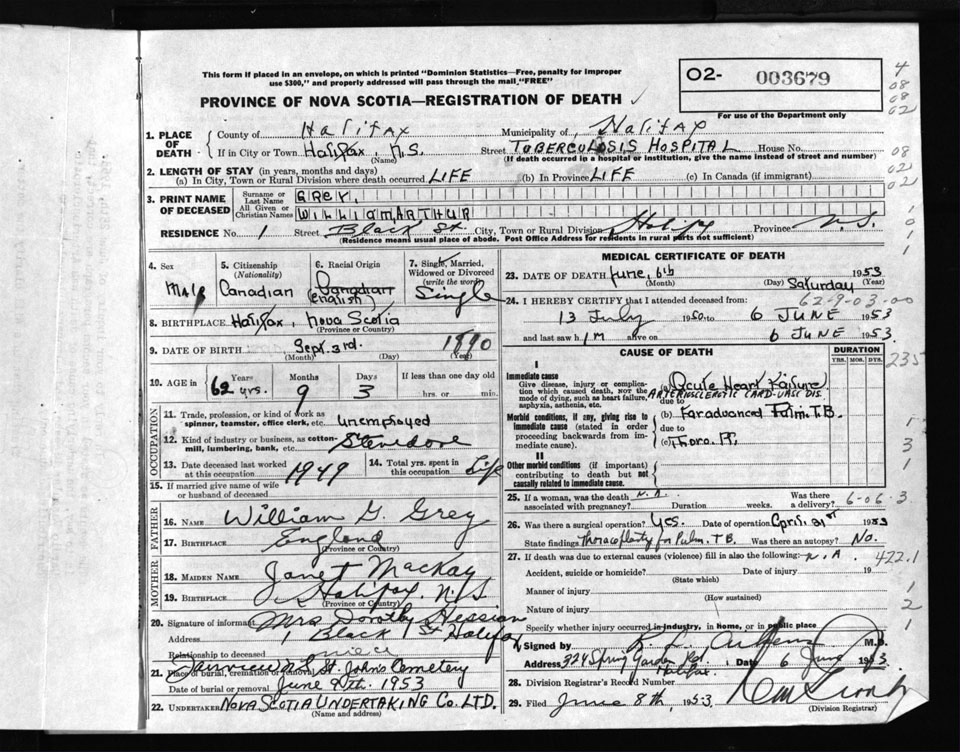 This form if placed in an envelope, on which is printed "Dominion Statistics—Free, penalty for improper
use $300," and properly addressed will pass through the mail "FREE"
O2- 003679
PROVINCE OF NOVA SCOTIA—REGISTRATION OF DEATH
For use of the Department only
4
08
08
02
1. PLACE OF DEATH County of Halifax Municipality of Halifax
If in City or Town Halifax, N.S. Street TUBERCULOSIS HOSPITAL House No.
(Name) (If death occurred in a hospital or institution, give the name instead of street and number)
08
02
02
2. LENGTH OF STAY (in years, months and days)
(a) In City, Town or Rural Division where death occurred LIFE (b) In Province LIFE (c) In Canada (if immigrant)
3. PRINT NAME OF DECEASED
Surname or Last Name GREY,
All Given or Christian Names WILLIAM ARTHUR
RESIDENCE No. 1 Street Black St City, Town or Rural Division Halifax Province N.S.
(Residence means usual place of abode. Post Office Address for residents in rural parts not sufficient)
1
0
1
1
4. Sex Male
5. Citizenship (Nationality) Canadian
6. Racial Origin Canadian (English)
7. Single, Married, Widowed or Divorced (write the word) Single
8. BIRTHPLACE Halifax, Nova Scotia
(Province or Country)
9. DATE OF BIRTH Sept. 3rd. 1890
(Month) (Day) (Year)
10. AGE in Years Months Days If less than one day old
62 yrs. 9 3 hrs. or min.
OCCUPATION
11. Trade, profession, or kind of work as
spinner, teamster, office clerk, etc. unemployed
12. Kind of industry or business, as cotton-
mill, lumbering, bank, etc. Stevedore
13. Date deceased last worked
at this occupation 1949
14. Total yrs. spent in
this occupation Life
15. If married give name of wife
or husband of deceased
FATHER
16. NAME William G. Grey
17. BIRTHPLACE England
(Province or Country)
MOTHER
18. MAIDEN NAME Janet MacKay
19. BIRTHPLACE Halifax, N.S.
(Province or Country)
20. Signature of informant Mrs Dorothy Hession
Address 1 Black St Halifax
Relationship to deceased niece
21. Place of burial, cremation or removal Fairview N.S. St. John's Cemetery
Date of burial or removal June 9th. 1953
22. UNDERTAKER NOVA SCOTIA UNDERTAKING CO. LTD.
(Name and address)
MEDICAL CERTIFICATE OF DEATH
23. DATE OF DEATH June, 6th Saturday 1953
(Month) (Day)
24. I HEREBY CERTIFY that I attended deceased from:
62-9-03-00
13 July 1950 to 6 JUNE 1953
and last saw h IM alive on 6 JUNE 1953
CAUSE OF DEATH
DURATION
YRS. MOS. DYS.
235
I
Immediate cause
Give disease, injury or complica-
tion which caused death, not the
mode of dying, such as heart failure,
asphyxia, asthenia, etc.
(a) Acute Heart Failure
ARTERIOSCLEROTIC CARD-VASC DIS.
due to
Morbid conditions, if any, giving rise to
immediate cause (stated in order
proceeding backwards from im-
mediate cause).
(b) Faradvanced Pulm. T.B.
due to
(c) Thoro. R,
1
3
II
Other morbid conditions (if important)
contributing to death but not
causally related to immediate cause.
25. If a woman, was the death N.A. Was there
associated with pregnancy? Duration weeks. a delivery?
6-06-3
26. Was there a surgical operation? Yes. Date of operation April 21st 1953
State findings Thoracoplasty for Pulm. T.B. Was there an autopsy? No.
27. If death was due to external causes (violence) fill in also the following: N.A.
422.1
Accident, suicide or homicide? Date of injury 19
(State which)
Manner of injury
(How sustained)
Nature of injury
1
2
1
Specify whether injury occurred in industry, in home, or in public place
Signed by M.D.
Address 324 Spring Garden Rd. Halifax. Date 6 June 1953
28. Division Registrar's Record Number
29. Filed June 8th, 1953.
(Division Registrar)